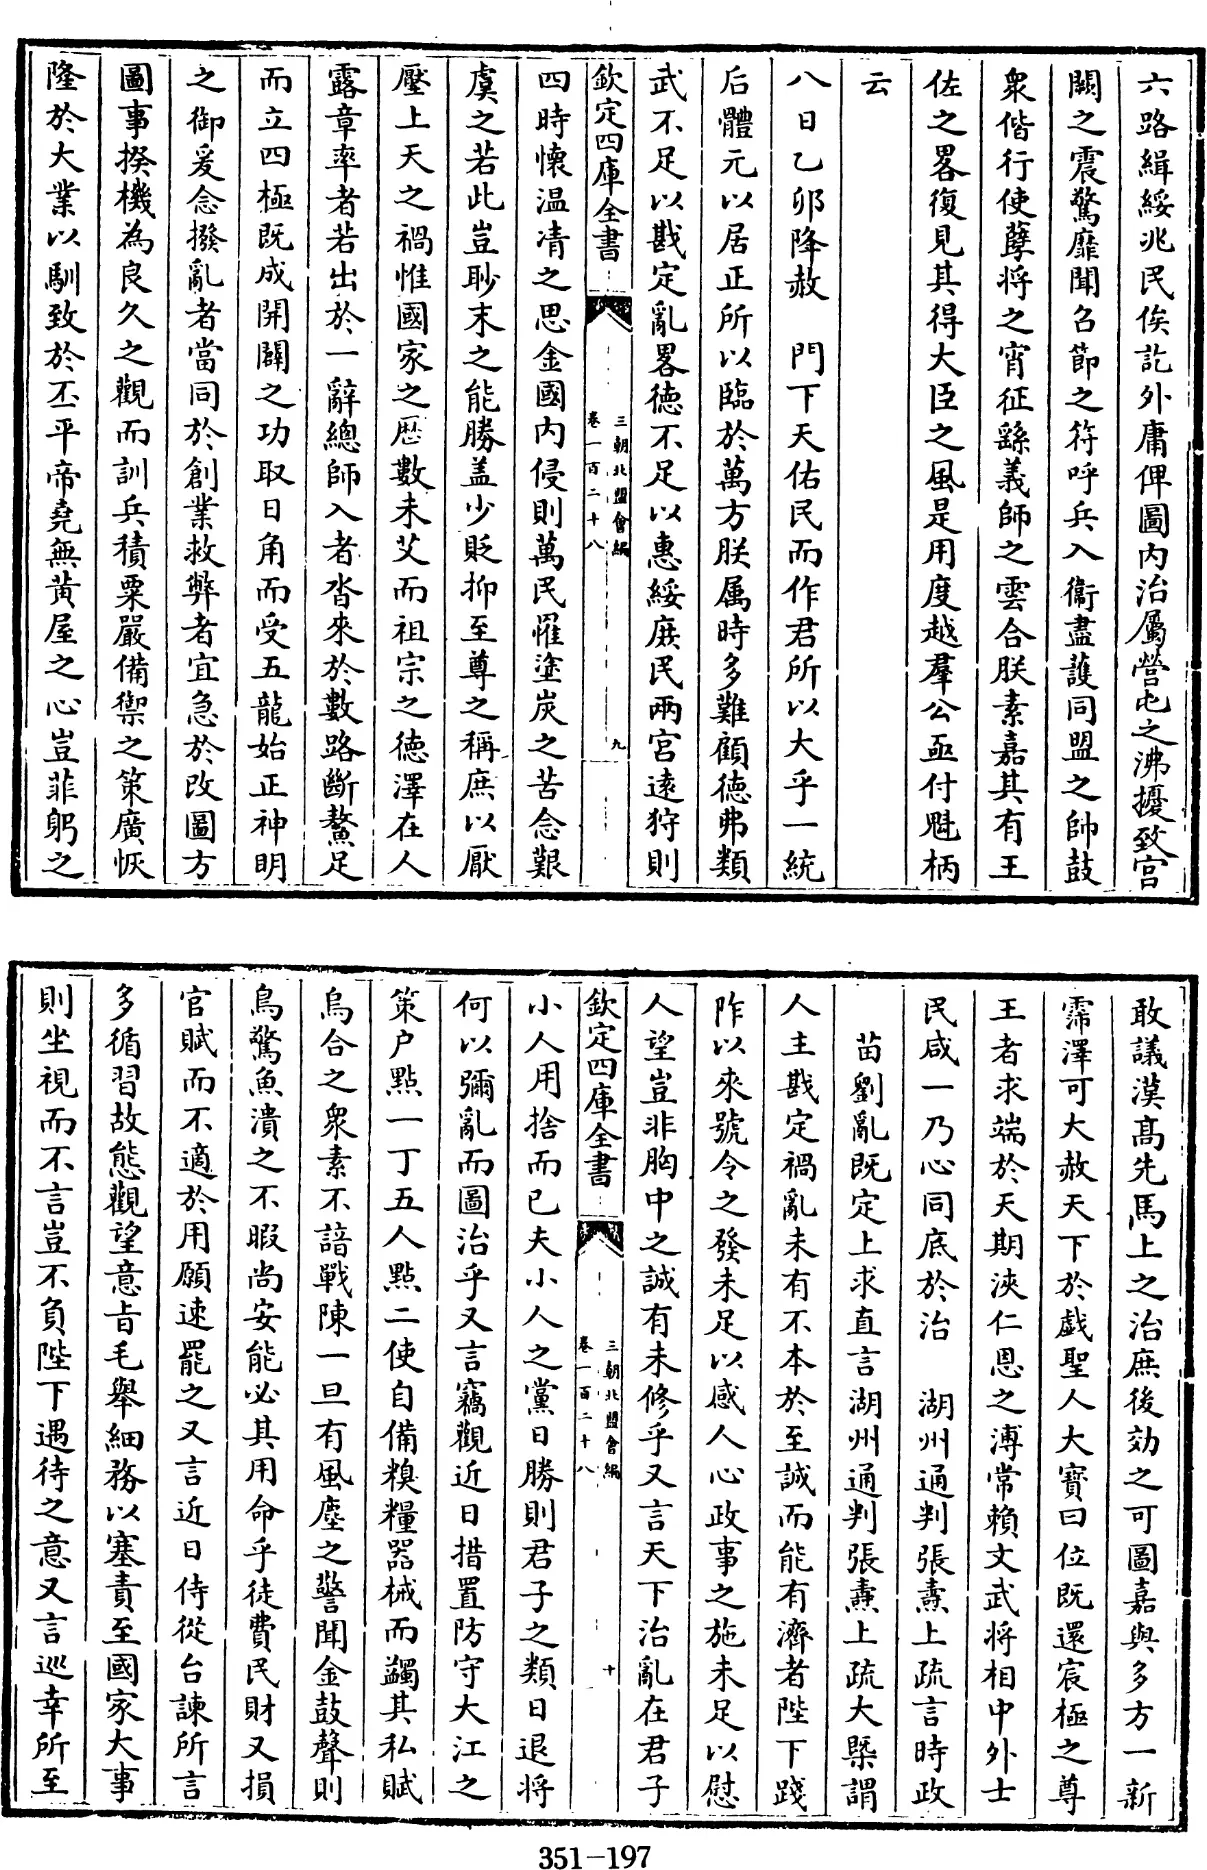 六路緝綏兆民俟訖外庸俾圖内治屬營屯之沸擾致宫
闕之震驚靡聞召節之符呼兵入衞盡護同盟之帥鼓
衆偕行使孽將之宵征繇義師之雲合朕素嘉其有王
佐之畧復見其得大臣之風是用度越羣公亟付魁柄
云
八日乙卯降赦　門下天佑民而作君所以大乎一統
后體元以居正所以臨於萬方朕属時多難顧德弗類
武不足以戡定亂畧德不足以惠綏庶民兩宫逺狩則
欽定四庫全書
三朝北盟會編
卷一百二十八
九
四時懐温凊之思金國内侵則萬民罹塗炭之苦念艱
虞之若此豈眇末之能勝盖少貶抑至尊之稱庶以厭
壓上天之禍惟國家之歴數未艾而祖宗之德澤在人
露章率者若出於一辭總師入者沓來於數路斷鰲足
而立四極既成開闢之功取日角而受五龍始正神明
之御爰念撥亂者當同於創業救弊者宜急於改圖方
圖事揆機為良久之觀而訓兵積粟嚴備禦之策廣恢
隆於大業以馴致於丕平帝堯無黄屋之心豈菲躬之
敢議漢髙先馬上之治庶後効之可圖嘉與多方一新
霈澤可大赦天下於戯聖人大寳曰位既還宸極之尊
王者求端於天期浹仁恩之溥常賴文武將相中外士
民咸一乃心同底於治　湖州通判張燾上疏言時政
苗劉亂既定上求直言湖州通判張燾上疏大槩謂
人主戡定禍亂未有不本於至誠而能有濟者陛下踐
阼以來號令之發未足以感人心政事之施未足以慰
人望豈非胸中之誠有未修乎又言天下治亂在君子
欽定四庫全書
三朝北盟會編
卷一百二十八
十
小人用捨而已夫小人之黨日勝則君子之類日退將
何以彌亂而圖治乎又言竊觀近日措置防守大江之
策户㸃一丁五人㸃二使自備糗糧器械而蠲其私賦
烏合之衆素不諳戰陳一旦有風塵之警聞金鼓聲則
鳥驚魚潰之不暇尚安能必其用命乎徒費民財又損
官賦而不適於用願速罷之又言近日侍從台諫所言
多循習故態觀望意旨毛舉細務以塞責至國家大事
則坐視而不言豈不負陛下遇待之意又言巡幸所至
351-197